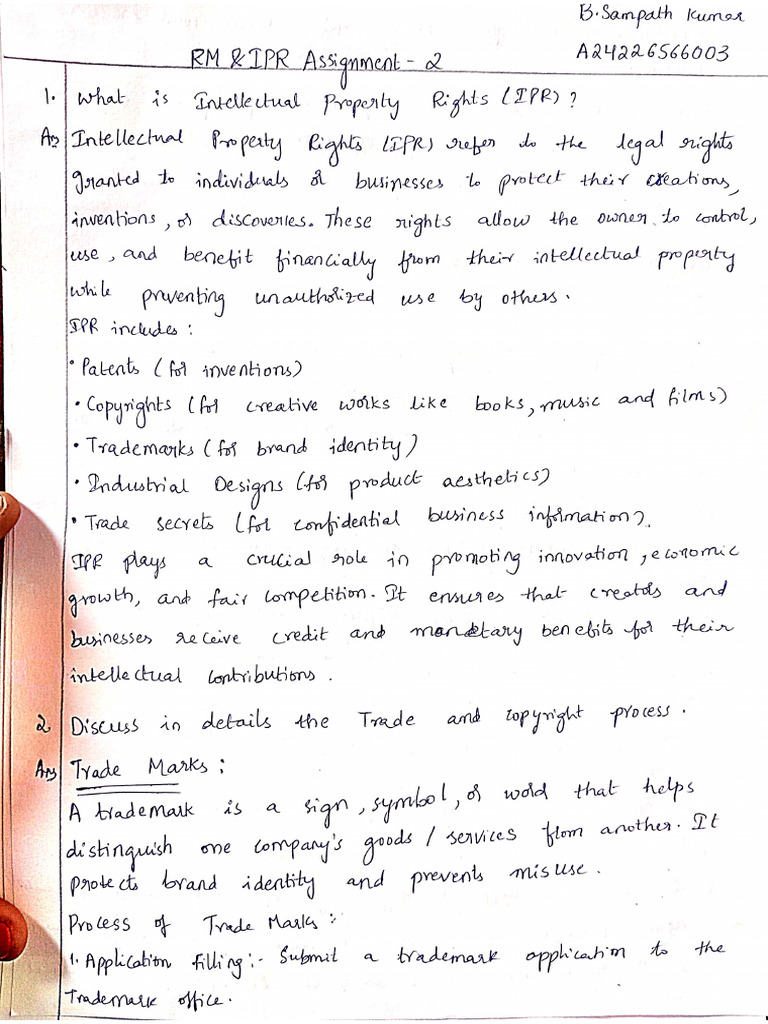 B. Sampath Kumar
A24226566003
RM & IPR Assignment - 2
1. What is Intellectual Property Rights (IPR) ?
Ans Intellectual Property Rights (IPR) refer to the legal rights
granted to individuals or businesses to protect their creations,
inventions, or discoveries. These rights allow the owner to control,
use, and benefit financially from their intellectual property
while preventing unauthorized use by others.
IPR includes :
• Patents (for inventions)
• Copyrights (for creative works like books, music and films)
• Trademarks (for brand identity)
• Industrial Designs (for product aesthetics)
• Trade secrets (for confidential business information).
IPR plays a crucial role in promoting innovation, economic
growth, and fair competition. It ensures that creators and
businesses receive credit and monetary benefits for their
intellectual contributions.
2 Discuss in details the Trade and copyright process.
Ans Trade Marks :
A trademark is a sign, symbol, or word that helps
distinguish one company's goods / services from another. It
protects brand identity and prevents misuse.
Process of Trade Marks :-
1. Application filling :- Submit a trademark application to the
Trademark office.